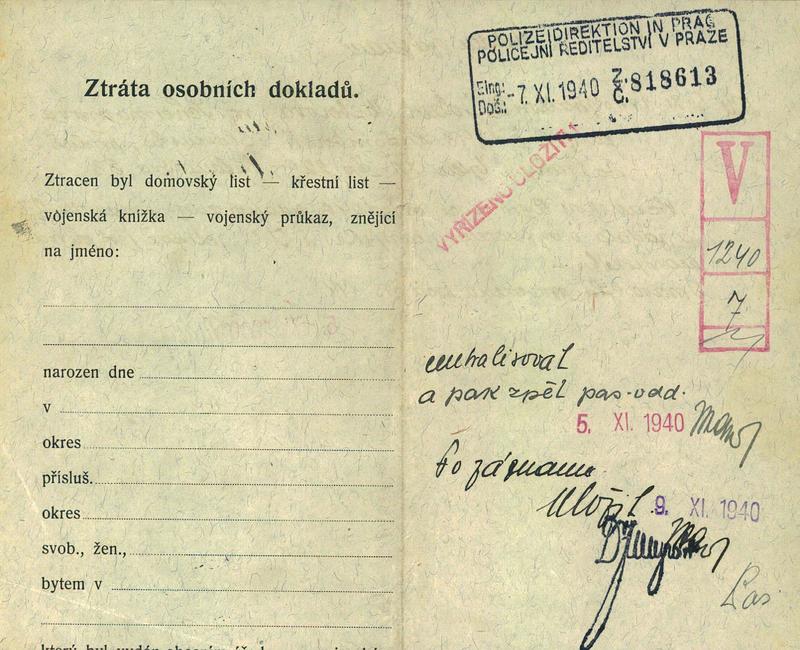 Ztráta osobních dokladů.
Ztracen byl domovský list — křestní list —
vojenská knížka — vojenský průkaz, znějící
na jméno:
narozen dne
v
okres
přísluš.
okres
svob., žen.,
bytem v
POLIZEIDIREKTION IN PRAG
POLICEJNÍ ŘEDITELSTVÍ V PRAZE
Eing.: -7. XI. 1940 Z. 818613
Doš.: Č.
VYŘÍZENO ULOŽITI
V
1240
7
a pak zpět pas. odd.
5. XI. 1940
Po záznamu
Uložit 9. XI. 1940
Pas